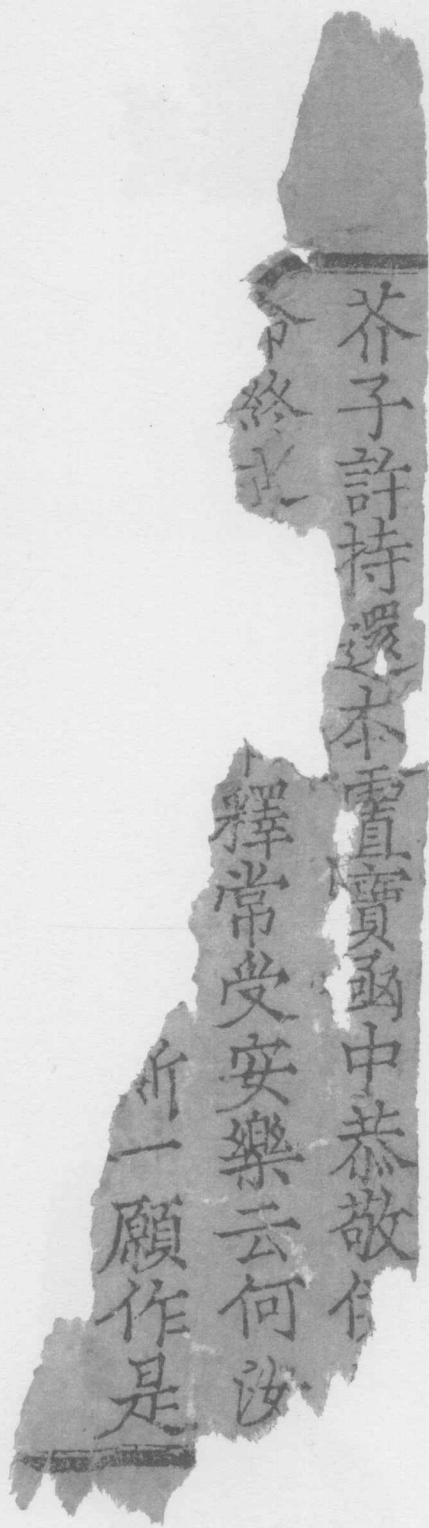 芥子許持還本置寶函中恭敬供
命終 釋常受安樂云何汝
斯一願作是